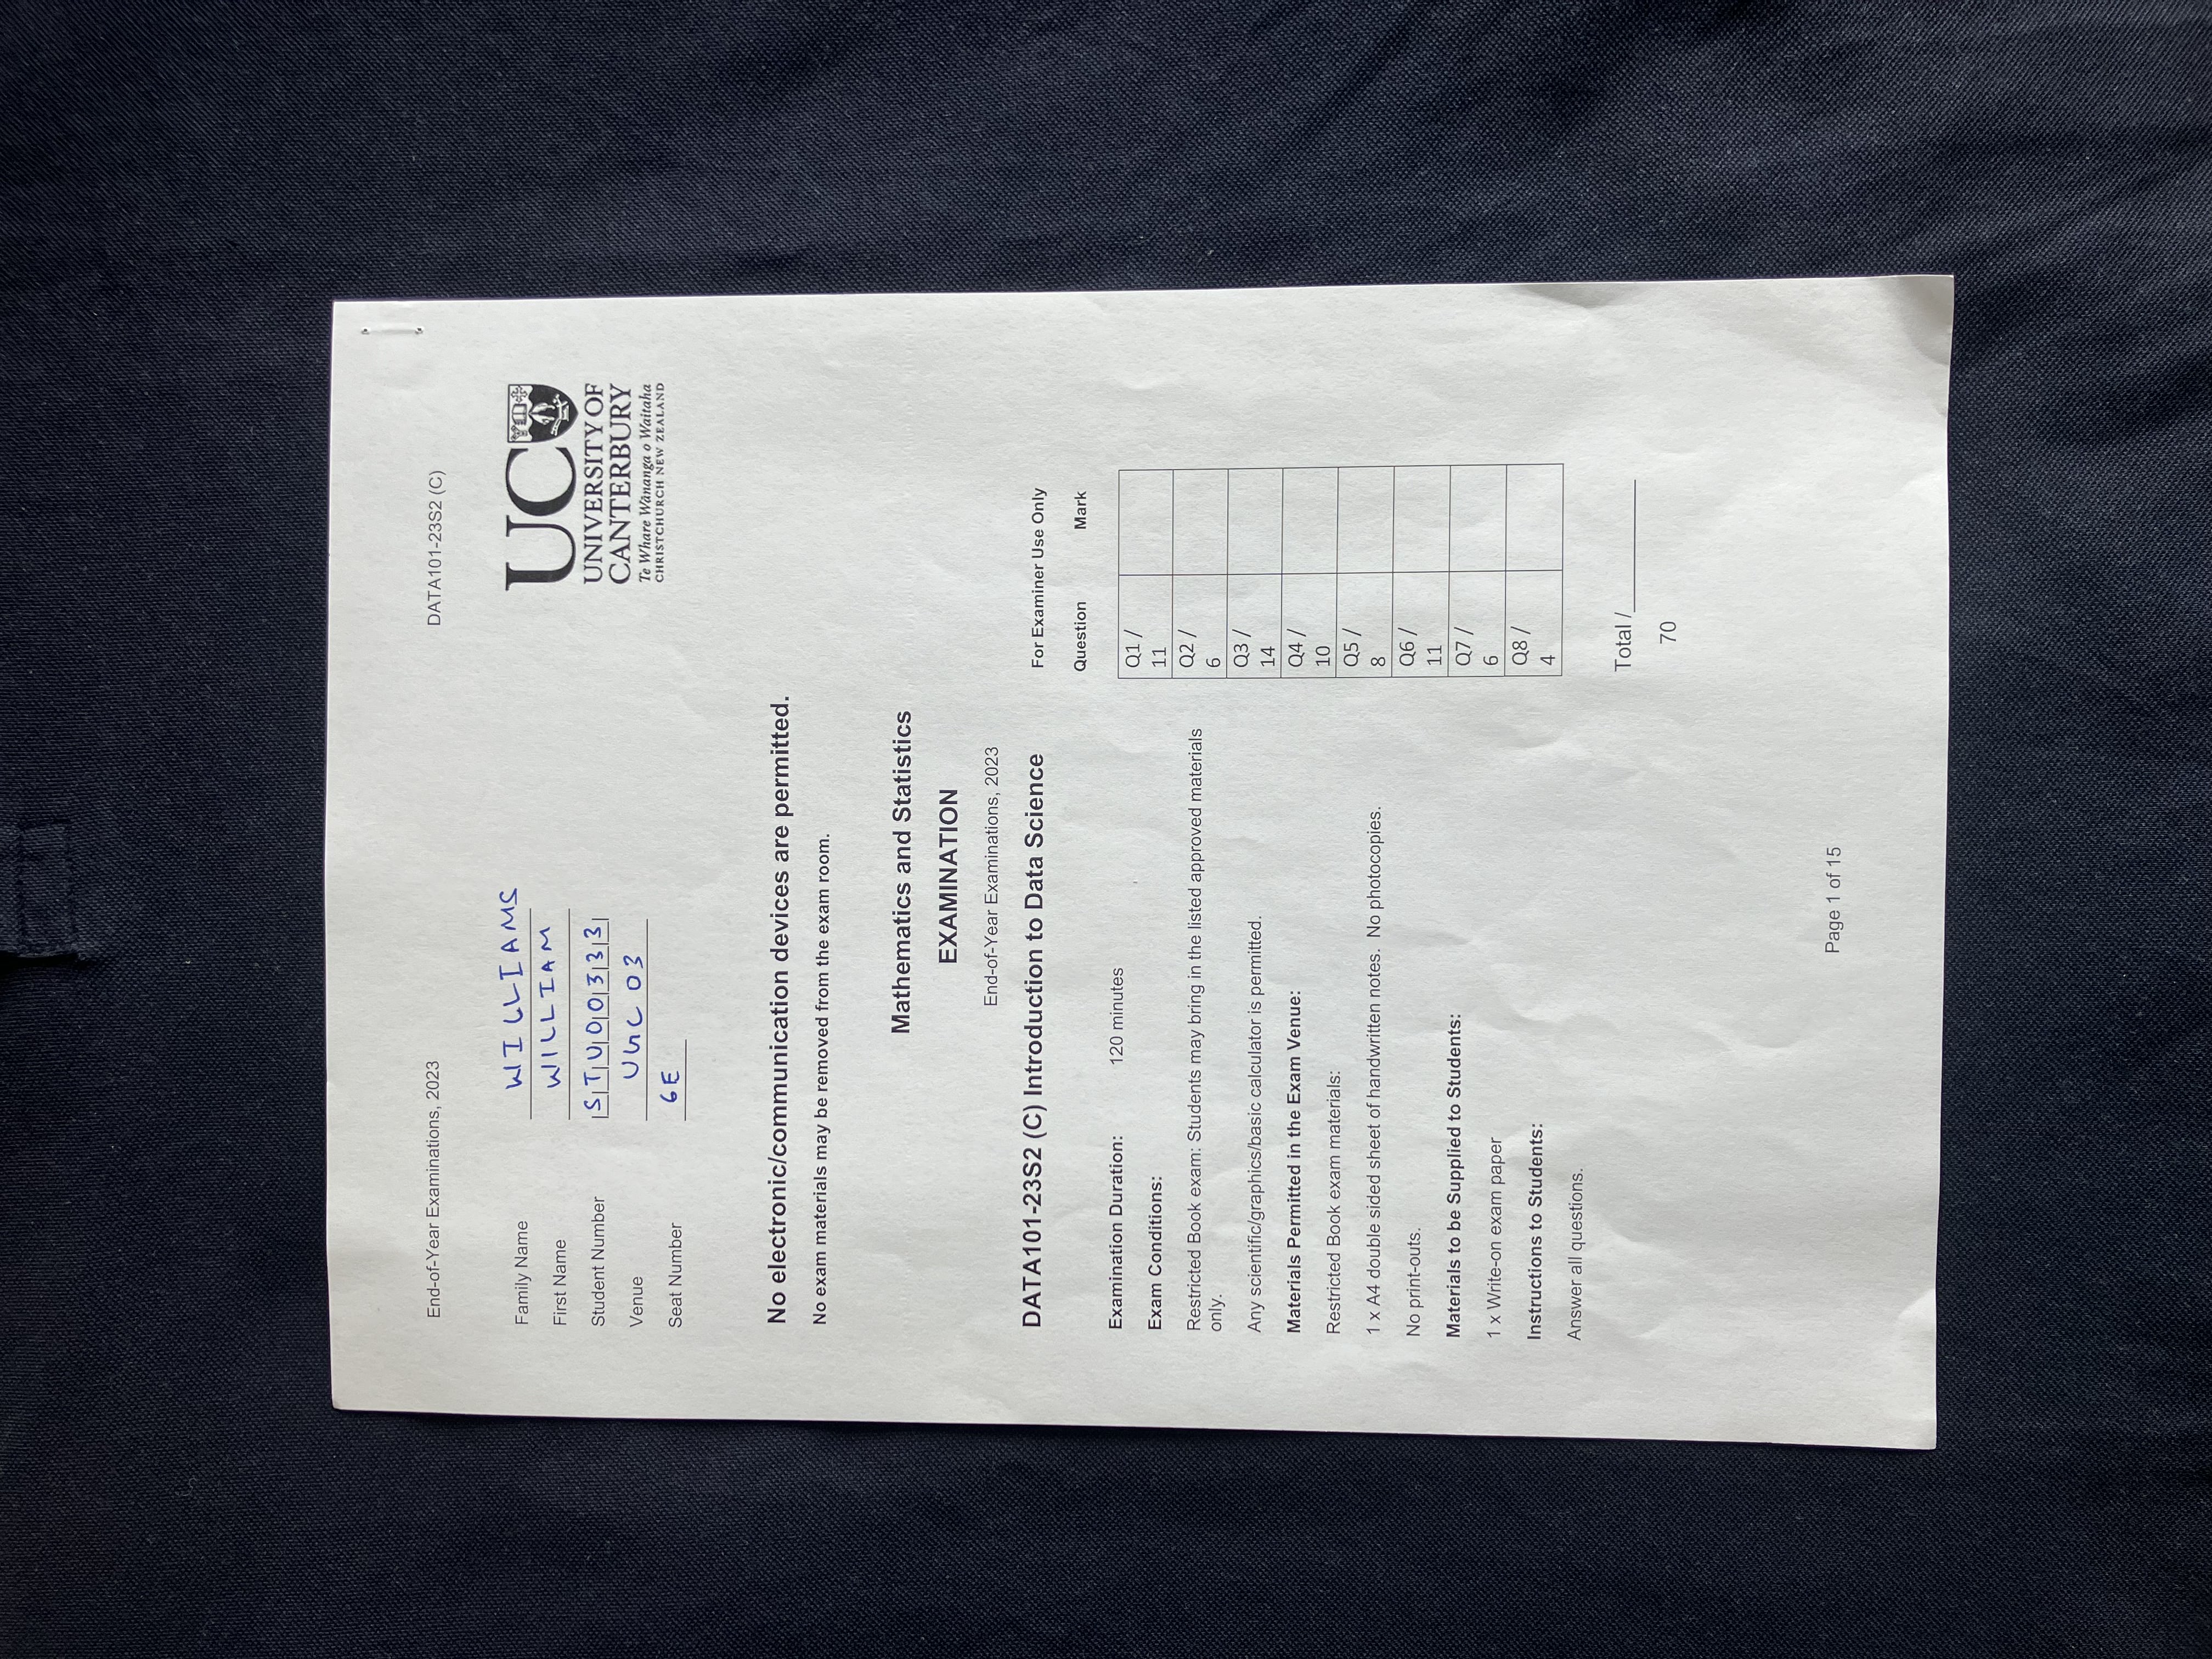 End-of-Year Examinations, 2023 DATA101-23S2 (C)
Family Name WILLIAMS
First Name WILLIAM
Student Number STU00333
Venue UGC 03
Seat Number 6E
UC
UNIVERSITY OF
CANTERBURY
Te Whare Wānanga o Waitaha
CHRISTCHURCH NEW ZEALAND
No electronic/communication devices are permitted.
No exam materials may be removed from the exam room.
Mathematics and Statistics
EXAMINATION
End-of-Year Examinations, 2023
DATA101-23S2 (C) Introduction to Data Science
Examination Duration: 120 minutes
Exam Conditions:
Restricted Book exam: Students may bring in the listed approved materials
only.
Any scientific/graphics/basic calculator is permitted.
Materials Permitted in the Exam Venue:
Restricted Book exam materials:
1 x A4 double sided sheet of handwritten notes. No photocopies.
No print-outs.
Materials to be Supplied to Students:
1 x Write-on exam paper
Instructions to Students:
Answer all questions.
For Examiner Use Only
Question Mark
Q1 /
11
Q2 /
6
Q3 /
14
Q4 /
10
Q5 /
8
Q6 /
11
Q7 /
6
Q8 /
4
Total /
70
Page 1 of 15